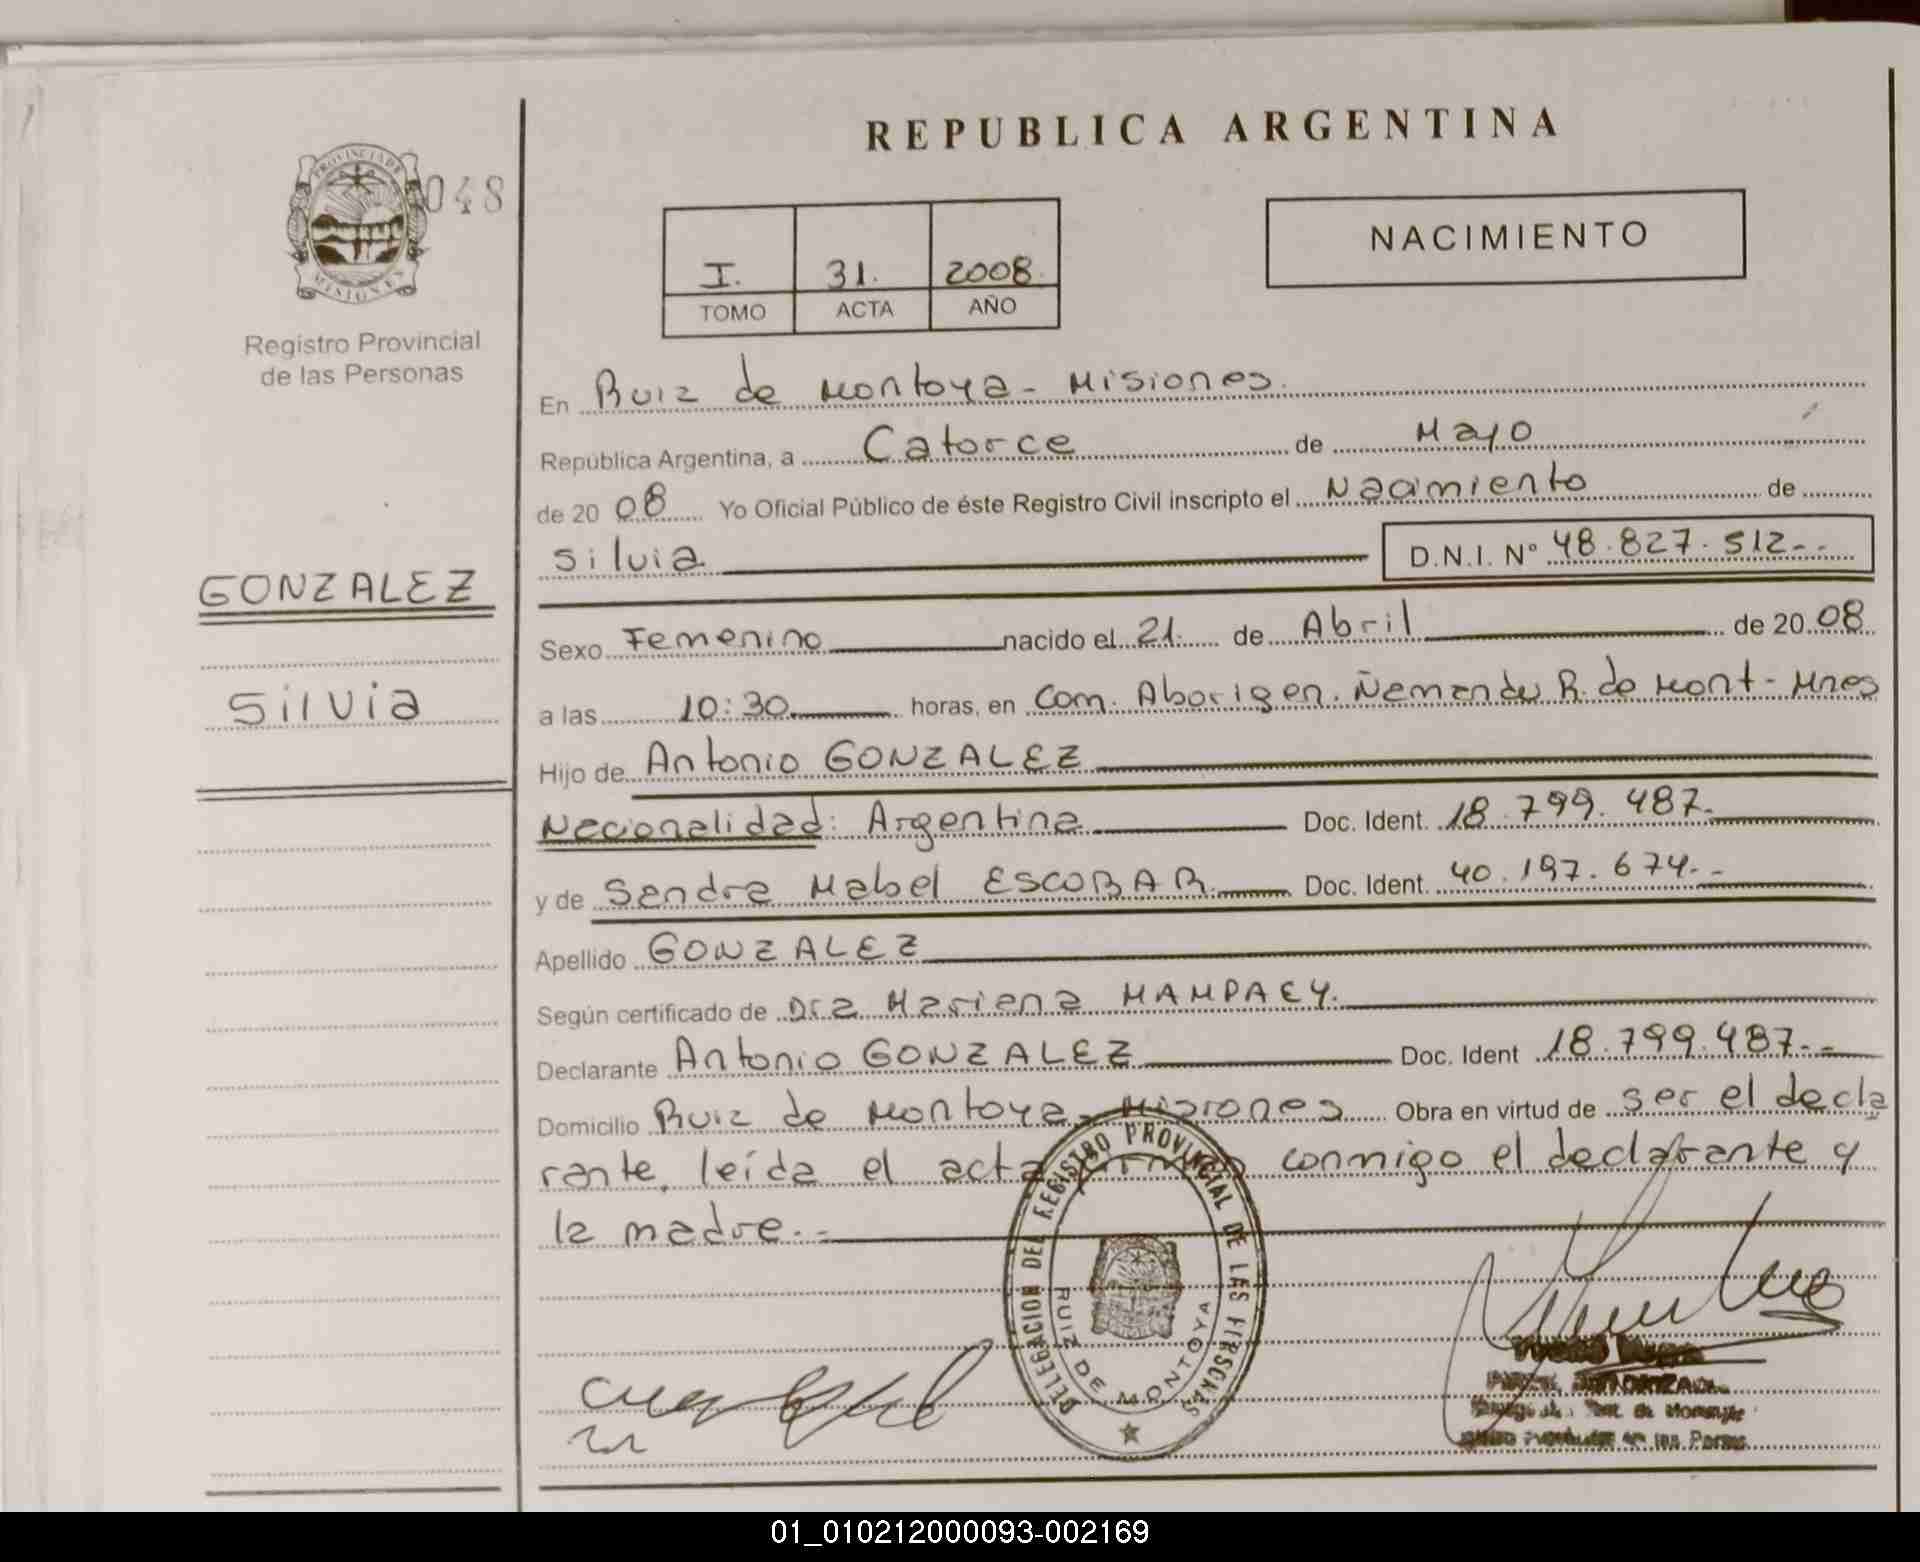 REPUBLICA ARGENTINA
PROVINCIA DE
MISIONES
048
Registro Provincial
de las Personas
I. 31. 2008.
TOMO ACTA AÑO
NACIMIENTO
GONZALEZ
Silvia
En Ruiz de Montoya - Misiones.
República Argentina, a Catorce de Mayo
de 20 08 Yo Oficial Público de éste Registro Civil inscripto el Nacimiento de
Silvia D.N.I. Nº 48.827.512--
Sexo Femenino nacido el 21. de Abril de 20 08
a las 10:30 horas, en Com. Aborigen. Ñemandu R. de Mont - Mnes
Hijo de Antonio GONZALEZ
Nacionalidad: Argentina Doc. Ident. 18.799.487.
y de Sandra Mabel ESCOBAR. Doc. Ident. 40.197.674.-
Apellido GONZALEZ
Según certificado de Dra Mariana MAMPAEY.
Declarante Antonio GONZALEZ Doc. Ident 18.799.487.-
Domicilio Ruiz de Montoya - Misiones Obra en virtud de ser el decla
rante, leída el acta conmigo el declarante y
la madre.-
DELEGACION DEL REGISTRO PROVINCIAL DE LAS PERSONAS
RUIZ DE MONTOYA
01_010212000093-002169